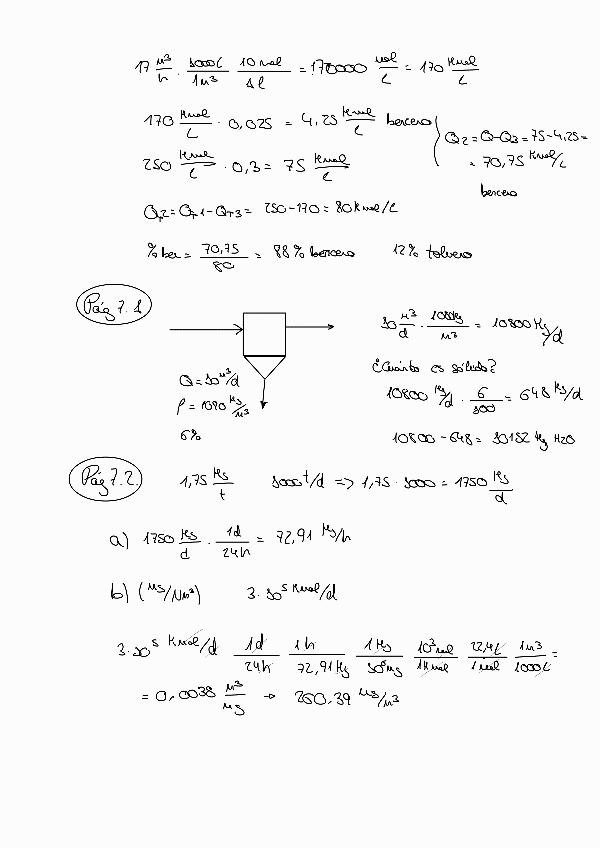 17 m³/h · 1000L/1m³ 10 mol/1l = 170000 mol/L = 170 Kmol/L
170 Kmol/L · 0,025 = 4,25 Kmol/L benceno
250 Kmol/L · 0,3 = 75 Kmol/L
Q2 = Q-Q3 = 75-4,25 =
= 70,75 Kmol/L
benceno
QT2 = QT1-QT3 = 250-170 = 80 Kmol/L
% ben = 70,75/80 = 88% benceno 12% tolueno
Pág 7.1
10 m³/d · 1080Kg/m³ = 10800 Kg/d
¿Cuánto es sólido?
Q = 10 m³/d
10800 Kg/d · 6/100 = 648 Kg/d
ρ = 1080 Kg/m³
6%
10800-648 = 10152 Kg H2O
Pág 7.2
1,75 Kg/t 1000 t/d => 1,75 · 1000 = 1750 Kg/d
a) 1750 Kg/d · 1d/24h = 72,91 Kg/h
b) (Mg/Nm³) 3·10⁵ Kmol/d
3·10⁵ Kmol/d 1d/24h 1h/72,91Kg 1Kg/10⁶mg 10³mol/1Kmol 22,4L/1mol 1m³/1000L =
= 0,0038 m³/mg → 260,39 Mg/m³